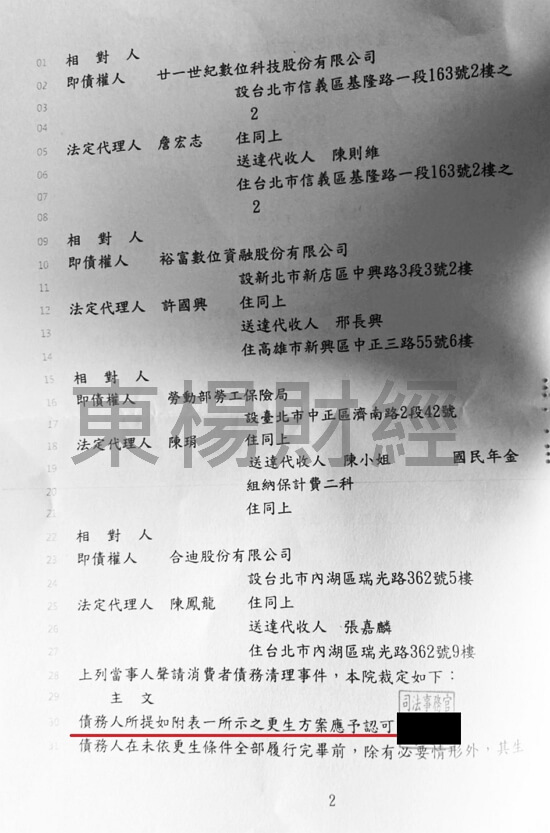 01 相 對 人
02 即債權人 廿一世紀數位科技股份有限公司
03 設台北市信義區基隆路一段163號2樓之
04 2
05 法定代理人 詹宏志 住同上
06 送達代收人 陳則維
07 住台北市信義區基隆路一段163號2樓之
08 2
09 相 對 人
10 即債權人 裕富數位資融股份有限公司
11 設新北市新店區中興路3段3號2樓
12 法定代理人 許國興 住同上
13 送達代收人 邢長興
14 住高雄市新興區中正三路55號6樓
15 相 對 人
16 即債權人 勞動部勞工保險局
17 設臺北市中正區濟南路2段42號
18 法定代理人 陳琄 住同上
19 送達代收人 陳小姐 國民年金
20 組納保計費二科
21 住同上
22 相 對 人
23 即債權人 合迪股份有限公司
24 設台北市內湖區瑞光路362號5樓
25 法定代理人 陳鳳龍 住同上
26 送達代收人 張嘉麟
27 住台北市內湖區瑞光路362號9樓
28 上列當事人聲請消費者債務清理事件，本院裁定如下：
29 主 文
司法事務官
30 債務人所提如附表一所示之更生方案應予認可
31 債務人在未依更生條件全部履行完畢前，除有必要情形外，其生
2
東楊財經